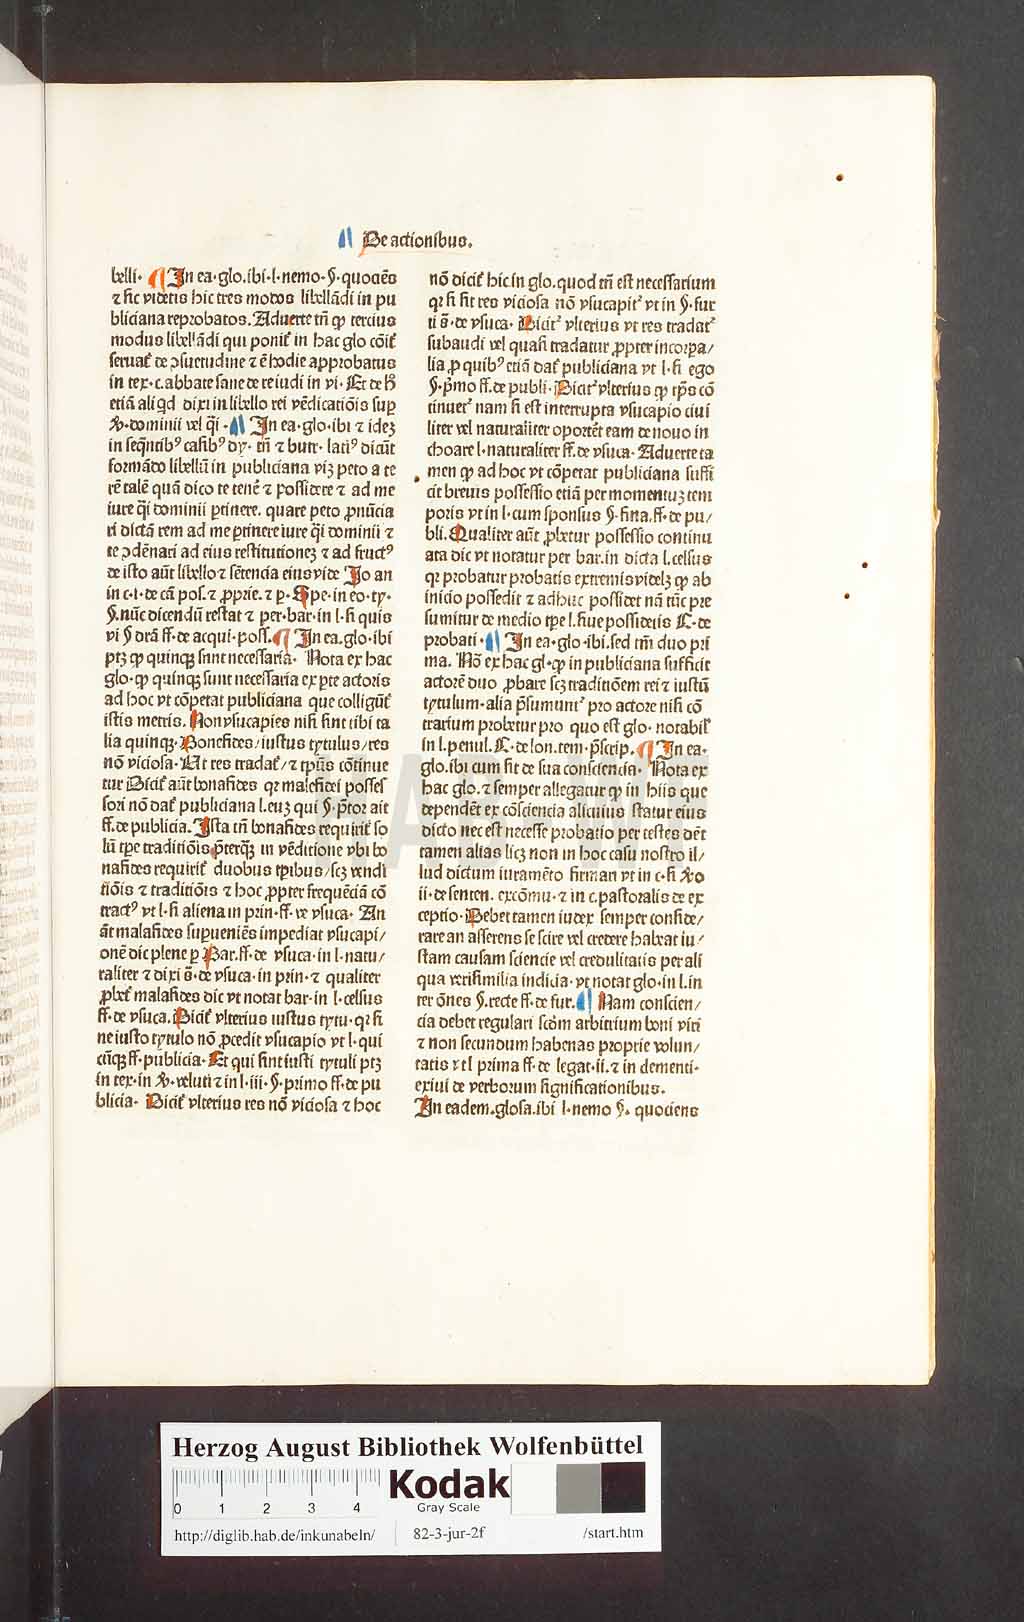 De actionibus.
belli· In ea·glo.ibi·l·nemo·§·quociēs
⁊ sic videtis hic tres modos libellādi in pu
bliciana reprobatos. Aduerte tn̄ ꝙ tercius
modus libellādi qui ponit᷑ in hac glo cōit᷑
seruat᷑ de ↄsuetudine ⁊ ē hodie approbatus
in tex·c.abbate sane de re iudi in vi· Et de h̄
etiā aliqd dixi in libello rei vēdicatiōis suꝑ
dominii vel q̄i· In ea·glo·ibi ⁊ idez
in seqn̄tibꝰ casibꝰ dy· tn̄ ⁊ butr· latiꝰ dicūt
formādo libellū in publiciana viz peto a te
rē talē quā dico te tenē ⁊ possidere ⁊ ad me
iure q̄i dominii ꝑtinere. quare peto ꝓnūcia
ri dictā rem ad me ꝑtinere iure q̄i dominii ⁊
te ↄdēnari ad eius restitutionez ⁊ ad fructꝰ
de isto aūt libello ⁊ sētencia eius vide Jo an
in c·i·de cā pos.⁊ ꝓprie.⁊ ꝑ· Spe·in eo·ty·
§·nūc dicendū restat ⁊ per·bar·in l·si quis
vi § drā ff·de acqui·poss. In ea.glo·ibi
ptz ꝙ quinqꝫ sunt necessaria· Nota ex hac
glo·ꝙ quinqꝫ sunt necessaria ex ꝑte actoris
ad hoc vt cōpetat publiciana que colligūt᷑
istis metris. Non vsucapies nisi sint tibi ta
lia quinqꝫ· Bonefides/iustus tytulus/res
nō viciosa· Ut res tradat᷑/⁊ tp̄us cōtinue
tur Dicit᷑ aūt bonafides qꝛ malefidei posses
sori nō dat᷑ publiciana l.euz qui §·p̄tor ait
ff.de publicia. Ista tn̄ bonafides requirit᷑ so
lū tp̄e traditiōis p̄terqꝫ in vēditione vbi bo
nafides requirit᷑ duobus tp̄ibus/scz vendi
tiōis ⁊ traditiōis ⁊ hoc ꝓpter frequēciā cō
tractꝰ vt l·si aliena in prin·ff·de vsuca· An
āt malafides suꝑueniēs impediat vsucapi/
onē dic plene ꝑ Bar.ff·de vsuca·in l·natu/
raliter ⁊ dixi s̄·de vsuca·in prin·⁊ qualiter
ꝓbet᷑ malafides dic vt notat bar·in l·celsus
ff·de vsuca. Dicit᷑ vlterius iustus tytu·qꝛ si
ne iusto tytulo nō ꝓcedit vsucapio vt l·qui
cūqꝫ ff·publicia· Et qui sint iusti tytuli ptz
in tex·in veluti ⁊ in l·iii·§·primo ff·de pu
blicia· Dicit᷑ vlterius res nō viciosa ⁊ hoc
nō dicit᷑ hic in glo.quod tn̄ est necessarium
qꝛ si sit res viciosa nō vsucapit᷑ vt in §·fur
ti s̄·de vsuca· Dicit᷑ vlterius vt res tradat᷑
subaudi vel quasi tradatur ꝓpter incorꝑa/
lia ꝓ quibꝰ etiā dat᷑ publiciana vt l·si ego
§·pͥmo ff.de publi·Dicit᷑ vlterius ꝙ tp̄s cō
tinuet᷑ nam si est interrupta vsucapio ciui
liter vel naturaliter oportēt eam de nouo in
choare l·naturaliter ff.de vsuca· Aduerte ta
men ꝙ ad hoc vt cōpetat publiciana suffi
cit breuis possessio etiā per momentuz tem
poris vt in l·cum sponsus §·fina.ff·de pu/
bli. Qualiter aūt ꝓbetur possessio continu
ata dic vt notatur per bar.in dicta l.celsus
qꝛ probatur probatis extremis videlz ꝙ ab
inicio possedit ⁊ adhuc possidet nā tūc pre
sumitur de medio tp̄e l.siue possidetis C·de
probati· In ea·glo·ibi.sed tm̄ duo pri
ma. Nō ex hac gl·ꝙ in publiciana sufficit
actorē duo ꝓbare scz traditiōem rei ⁊ iustū
tytulum·alia p̄sumunt᷑ pro actore nisi cō
trarium probetur pro quo est glo·notabil᷑
in l.penul. C·de lon.tem·p̄scrip. In ea·
glo.ibi cum sit de sua consciencia· Nota ex
hac glo.⁊ semper allegatur ꝙ in hiis que
dependēt ex cōsciencia alicuius statur eius
dicto nec est necesse probatio per testes dēt
tamen alias licz non in hoc casu nostro il/
lud dictum iuramēto firman vt in c·si
ii·de senten. excōmu·⁊ in c.pastoralis de ex
ceptio· Debet tamen iudex semper conside/
rare an asserens se scire vel credere habeat iu/
stam causam sciencie vel credulitatis per ali
qua verisimilia indicia·vt notat glo·in l.in
ter ōnes §.recte ff.de fur. Nam conscien/
cia debet regulari scd̄m arbitrium boni viri
⁊ non secundum habenas proprie volun/
tatis vt l prima ff·de legat·ii.⁊ in dementi·
exiui de verborum significationibus.
In eadem.glosa.ibi l·nemo §. quociens
HAB WF
Herzog August Bibliothek Wolfenbüttel
0 1 2 3 4
Kodak
Gray Scale
http://diglib.hab.de/inkunabeln/ 82-3-jur-2f /start.htm